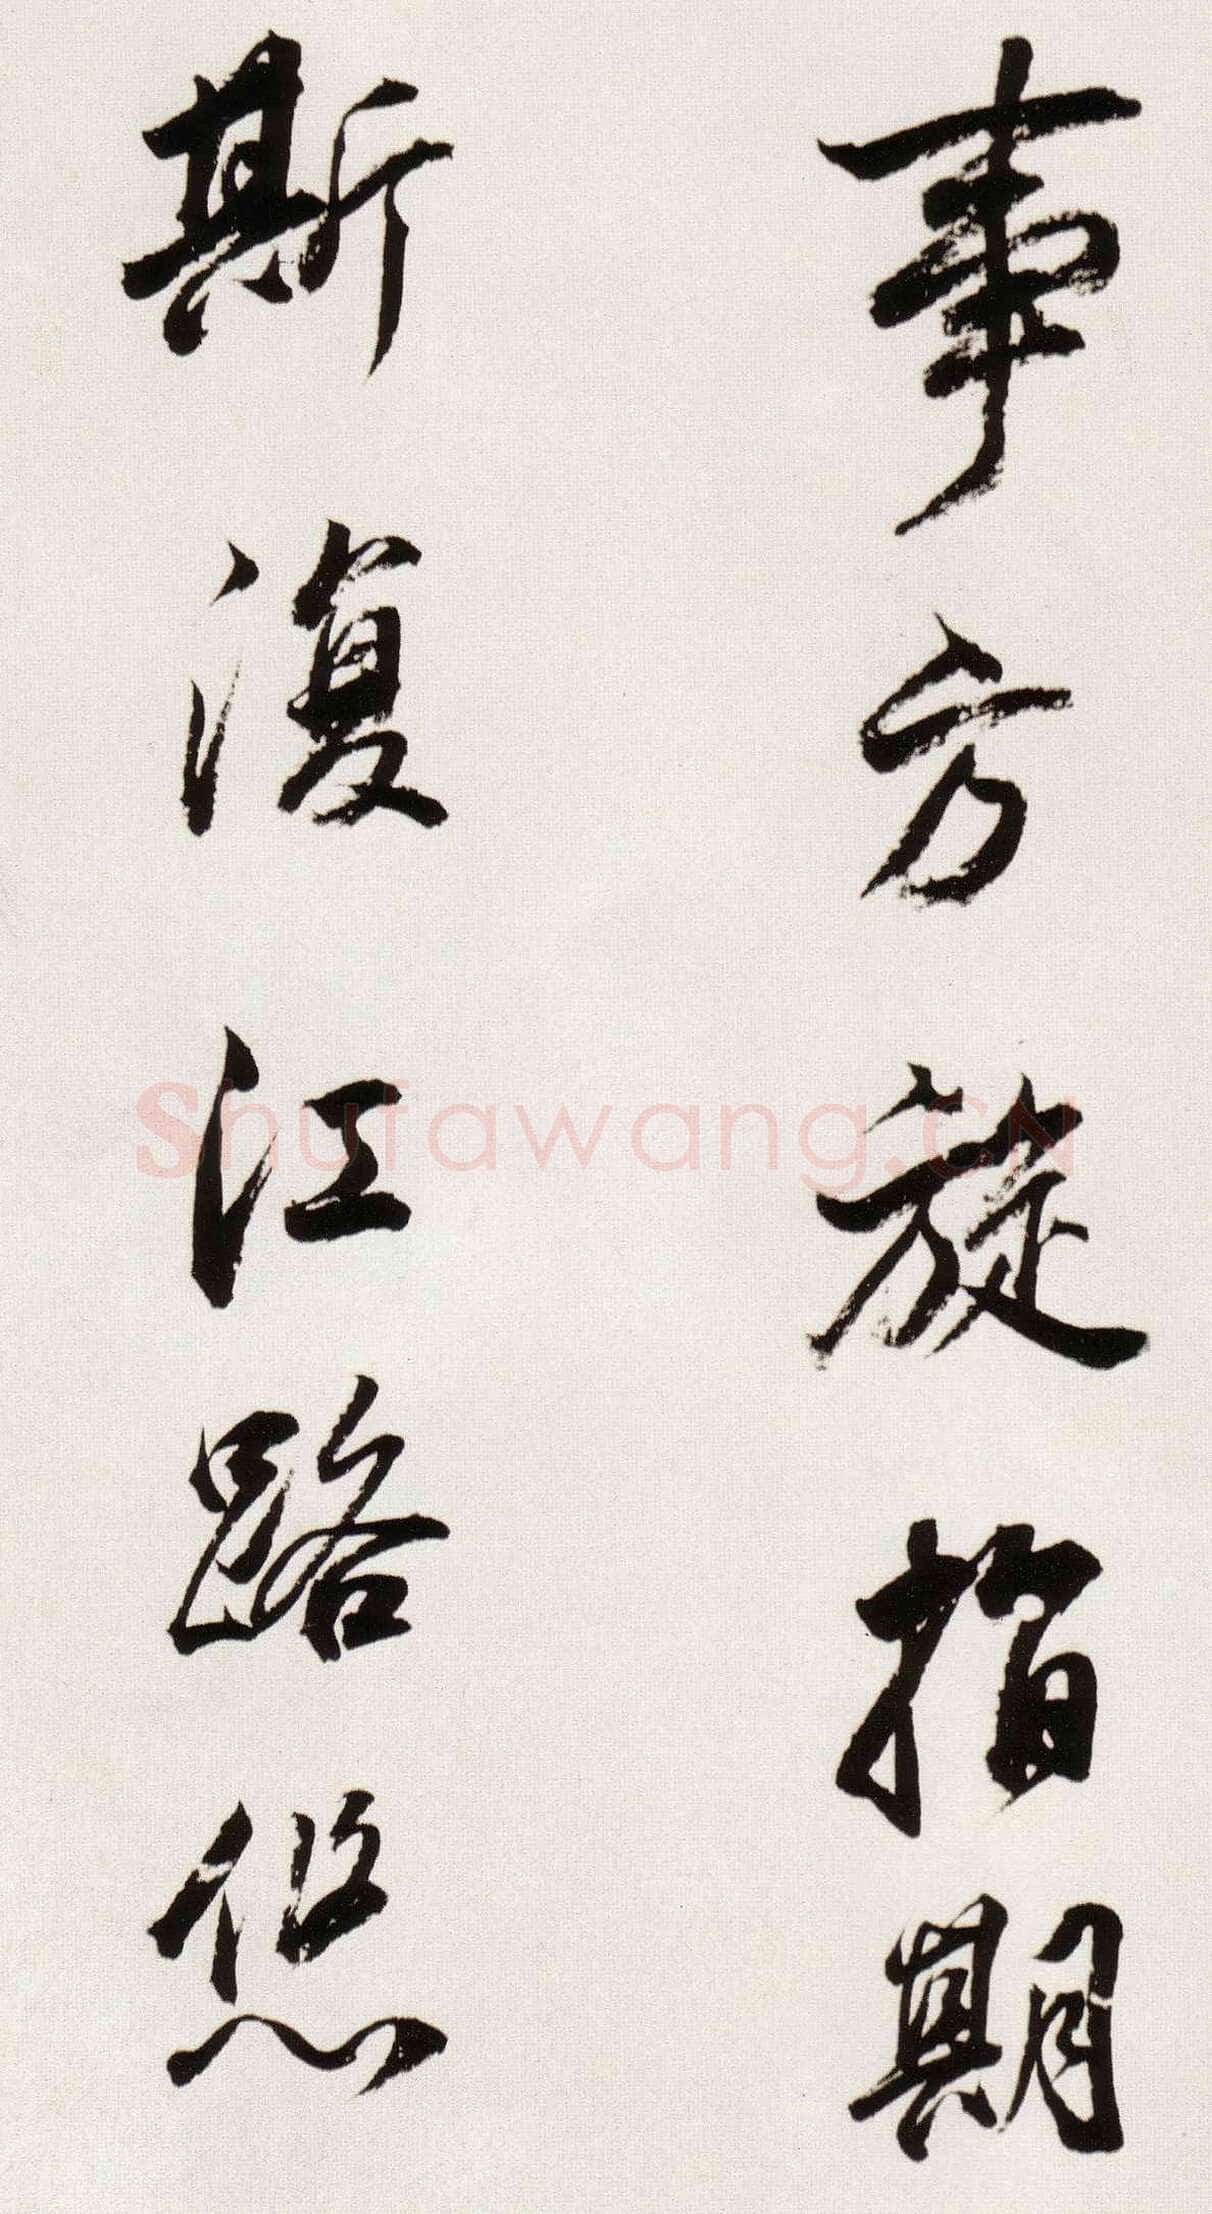 事方旋指期
斯復江路悠
Shufawang.CN